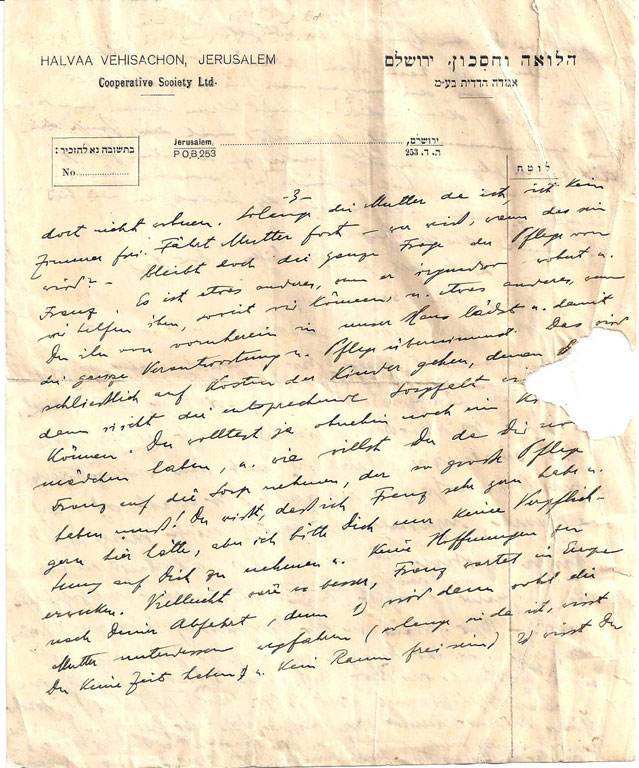 HALVAA VEHISACHON, JERUSALEM
Cooperative Society Ltd.
הלואה וחסכון, ירושלם
אגודה הדדית בע״מ
בתשובה נא להזכיר:
No.
Jerusalem,
P.O.B. 253
ירושלם,
ת. ד. 253
לוטה
-3-
dort nicht wohnen. Solange die Mutter da ist, ist kein
Zimmer frei. Fährt Mutter fort - wer weiss, wann das sein
wird? - bleibt doch die ganze Frage der Pflege von
Franz. Es ist etwas anderes, wenn er irgendwo wohnt u.
wir helfen ihm, soweit wir können u. etwas anderes, wenn
Du ihn von vornherein in unser Haus lädst u. damit
die ganze Verantwortung u. Pflege übernimmst. Das wird
schliesslich auf Kosten der Kinder gehen, denen
dann nicht die entsprechende Sorgfalt
können. Du wolltest ja ohnehin noch ein
mädchen haben, u. wie willst Du da Dir
Franz auf die Sorge nehmen, der so grosse Pflege
haben muss! Du weisst, dass ich Franz sehr gern habe u.
gern hier hätte, aber ich bitte Dich nur keine Verpflich-
tung auf Dich zu nehmen u. keine Hoffnungen zu
erwecken. Vielleicht wäre es besser, Franz wartet in Europa
nach Deiner Abfahrt, denn 1) wird dann wohl die
Mutter unterdessen wegfahren (solange sie da ist, wirst
Du keine Zeit haben u. kein Raum frei sein) 2) wirst Du